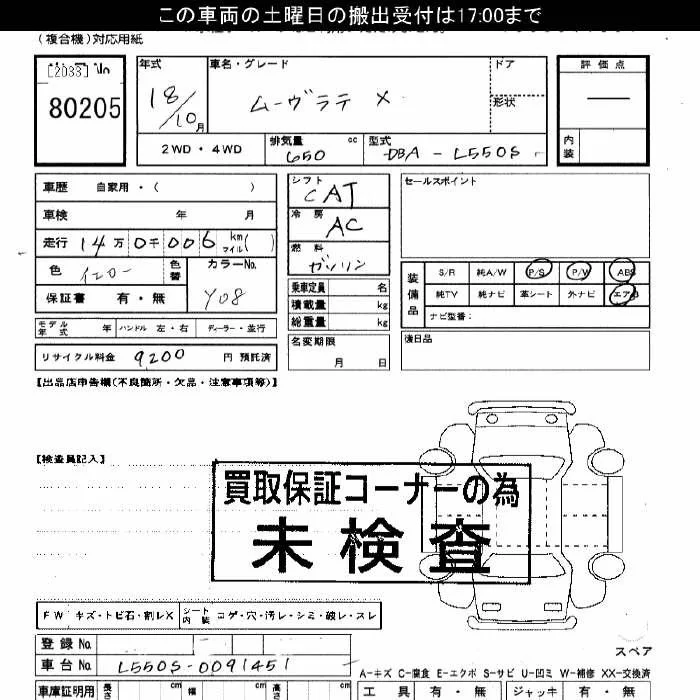 この車両の土曜日の搬出受付は17:00まで
(複合機)対応用紙
[2033] No
80205
年式
18/10月
車名・グレード
ムーヴラテ X
ドア
形状
評価点
内装
2WD・4WD
排気量 650 cc
型式 DBA-L550S
車歴 自家用・( )
車検 年 月
走行 14万0千006 km マイル( )
色 イエロー 色替
カラーNo. Y08
保証書 有・無
モデル年式 年 ハンドル 左・右 ディーラー・並行
リサイクル料金 9200 円 預託済
シフト CAT
冷房 AC
燃料 ガソリン
乗車定員 名
積載量 kg
総重量 kg
名変期限 月 日
セールスポイント
装備品
S/R 純A/W P/S P/W ABS
純TV 純ナビ 革シート 外ナビ エアB
ナビ型番:
後日品
【出品店申告欄(不良箇所・欠品・注意事項等)】
【検査員記入】
買取保証コーナーの為
未検査
FW キズ・トビ石・割レX
シート内装 コゲ・穴・汚レ・シミ・破レ・スレ
登録No.
車台No. L550S-0091451
スペア
A-キズ C-腐食 E-エクボ S-サビ U-凹ミ W-補修 XX-交換済
車庫証明用 長さ cm 幅 cm 高さ cm
工具 有・無 ジャッキ 有・無